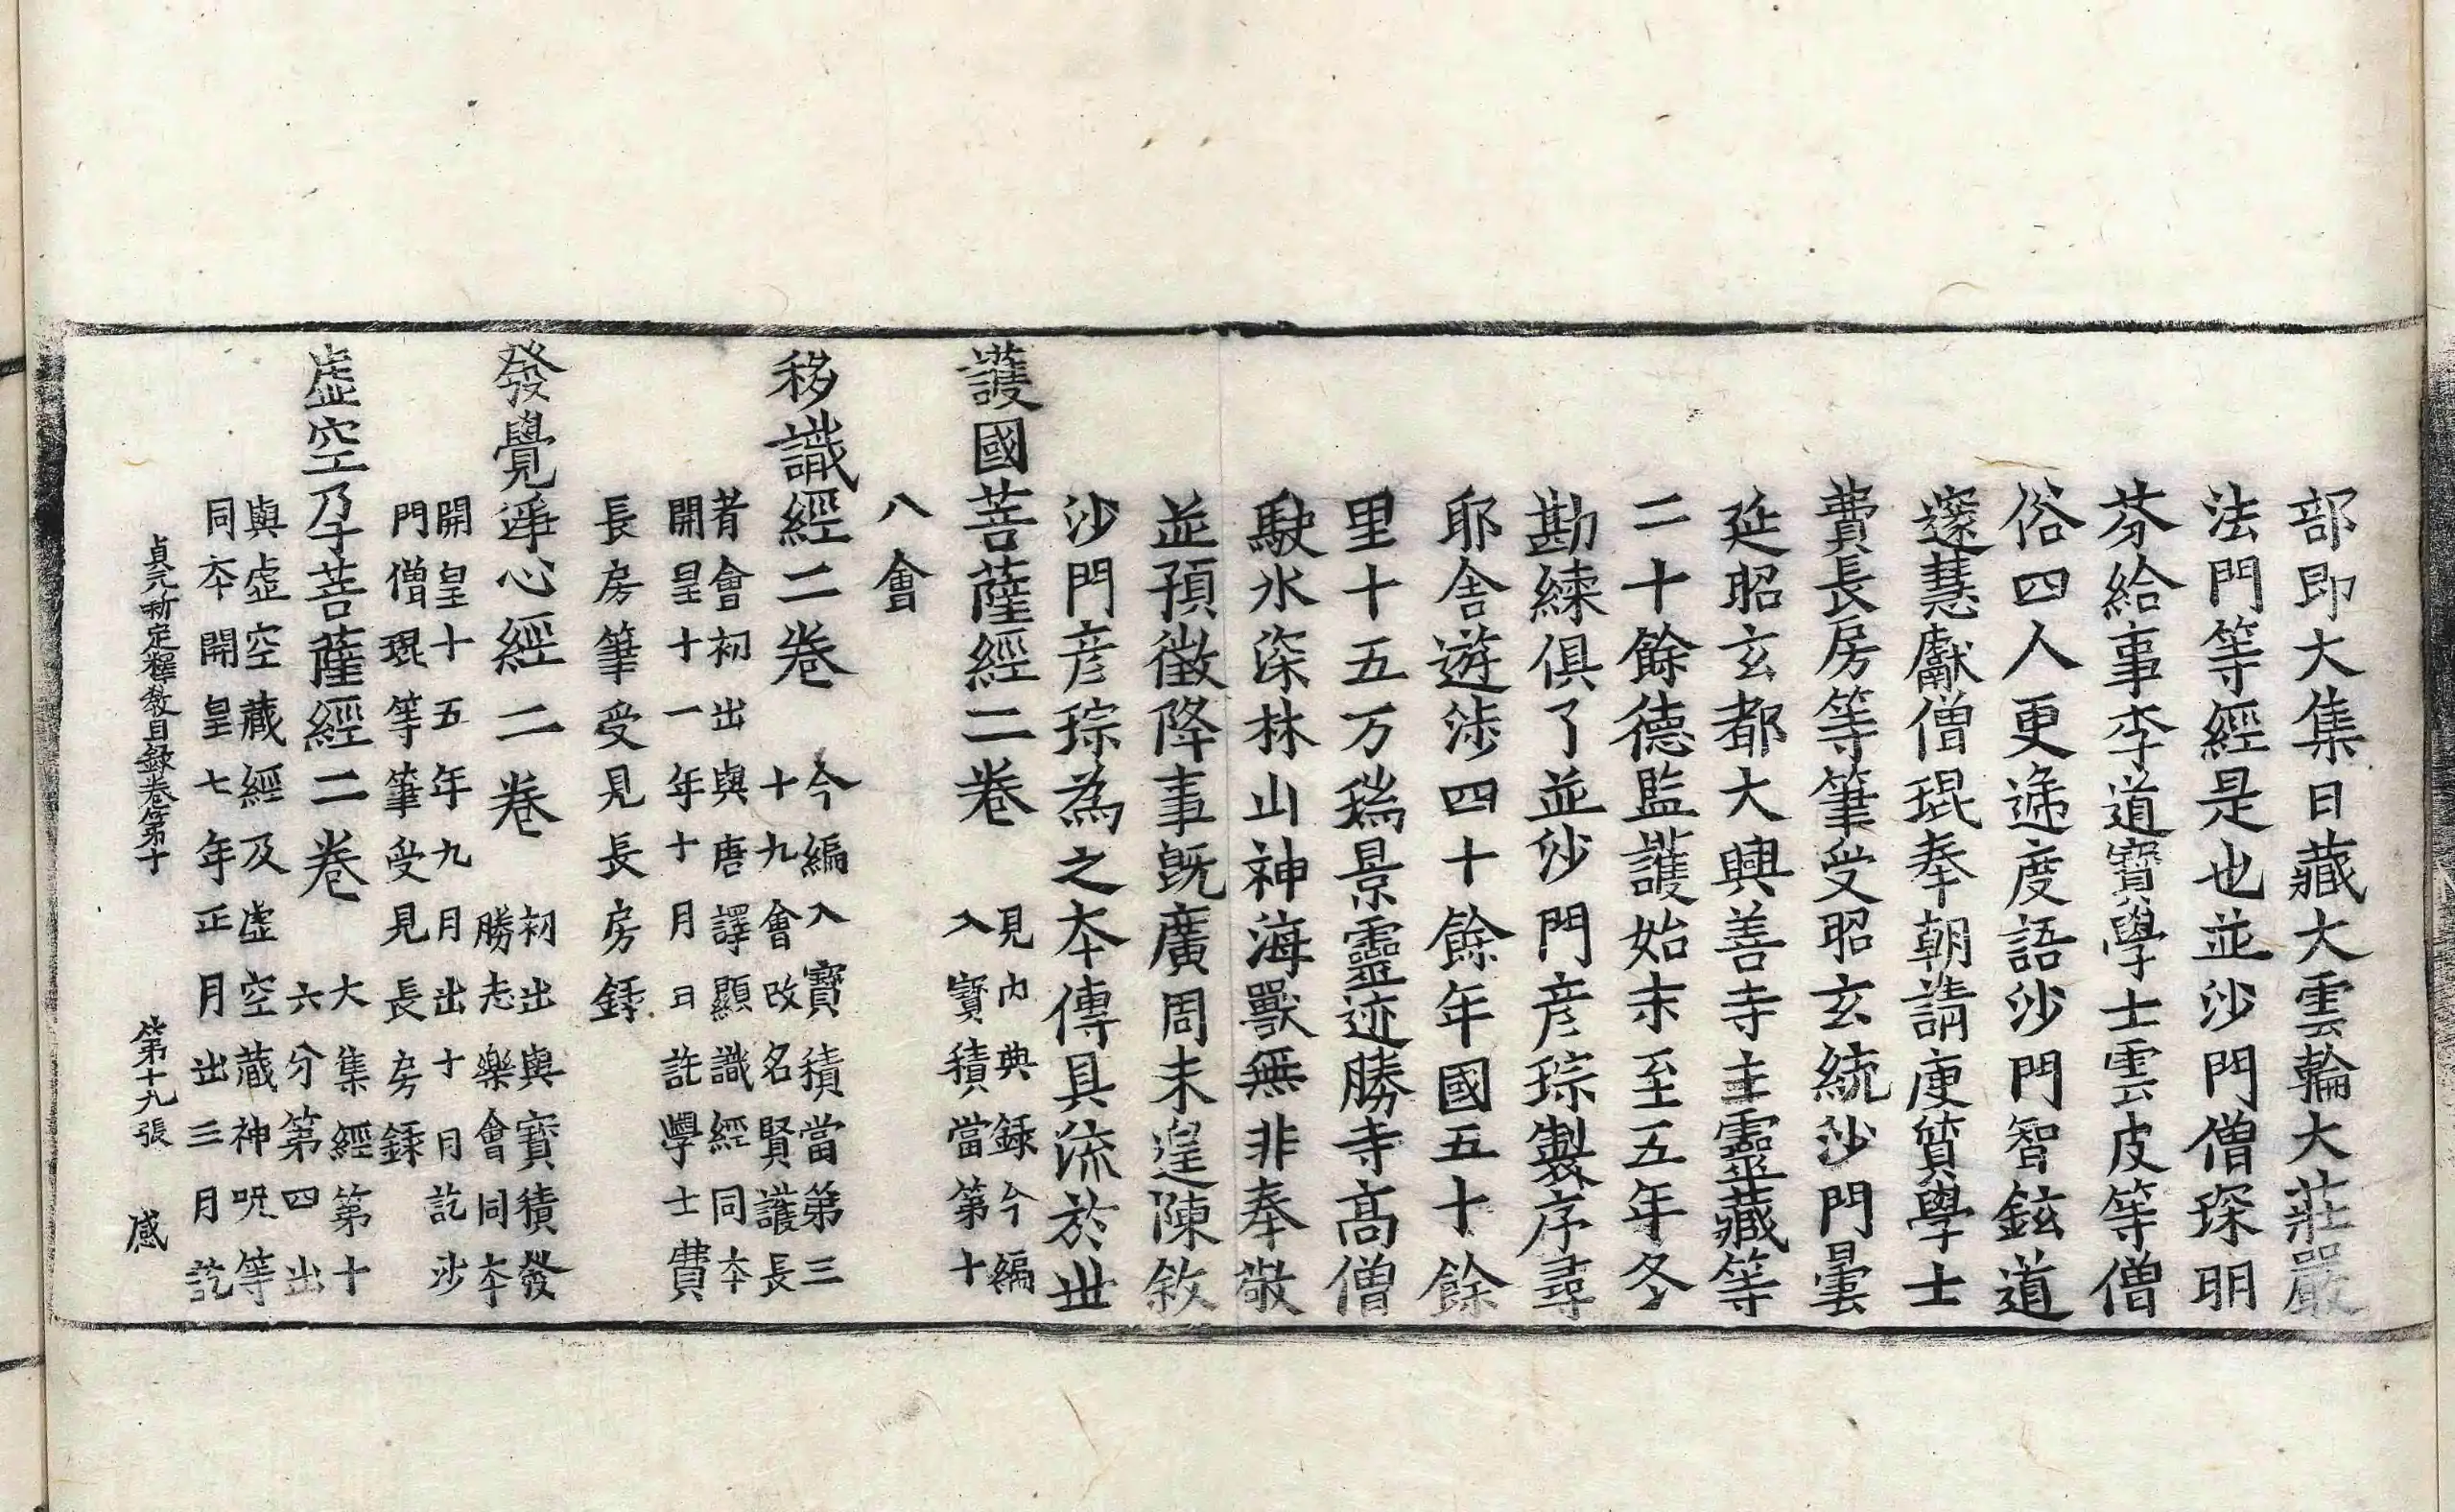 部即大集日藏大雲輪大莊嚴
法門等經是也並沙門僧琛明
芬給事李道寶學士雲皮等僧
俗四人更遞度語沙門智鉉道
邃慧獻僧琨奉朝請庾質學士
費長房等筆受昭玄統沙門曇
延昭玄都大興善寺主靈藏等
二十餘德監護始末至五年冬
勘練俱了並沙門彦琮製序尋
耶舍遊涉四十餘年國五十餘
里十五万瑞景靈迹勝寺高僧
駛水深林山神海獸無非奉敬
並預徵降事旣廣周未遑陳敘
沙門彦琮為之本傳具流於世
護國菩薩經二卷 見內典錄今編
入寶積當第十
八會
移識經二卷 今編入寶積當第三
十九會改名賢護長
者會初出與唐譯顯識經同本
開皇十一年十月 日訖學士費
長房筆受見長房錄
發覺淨心經二卷 初出與寶積發
勝志樂會同本
開皇十五年九月出十月訖沙
門僧琨等筆受見長房錄
虛空孕菩薩經二卷 大集經第十
六分第四出
與虛空藏經及虛空藏神呪等
同本開皇七年正月出三月訖
貞元新定釋教目錄卷第十 第十九張 感